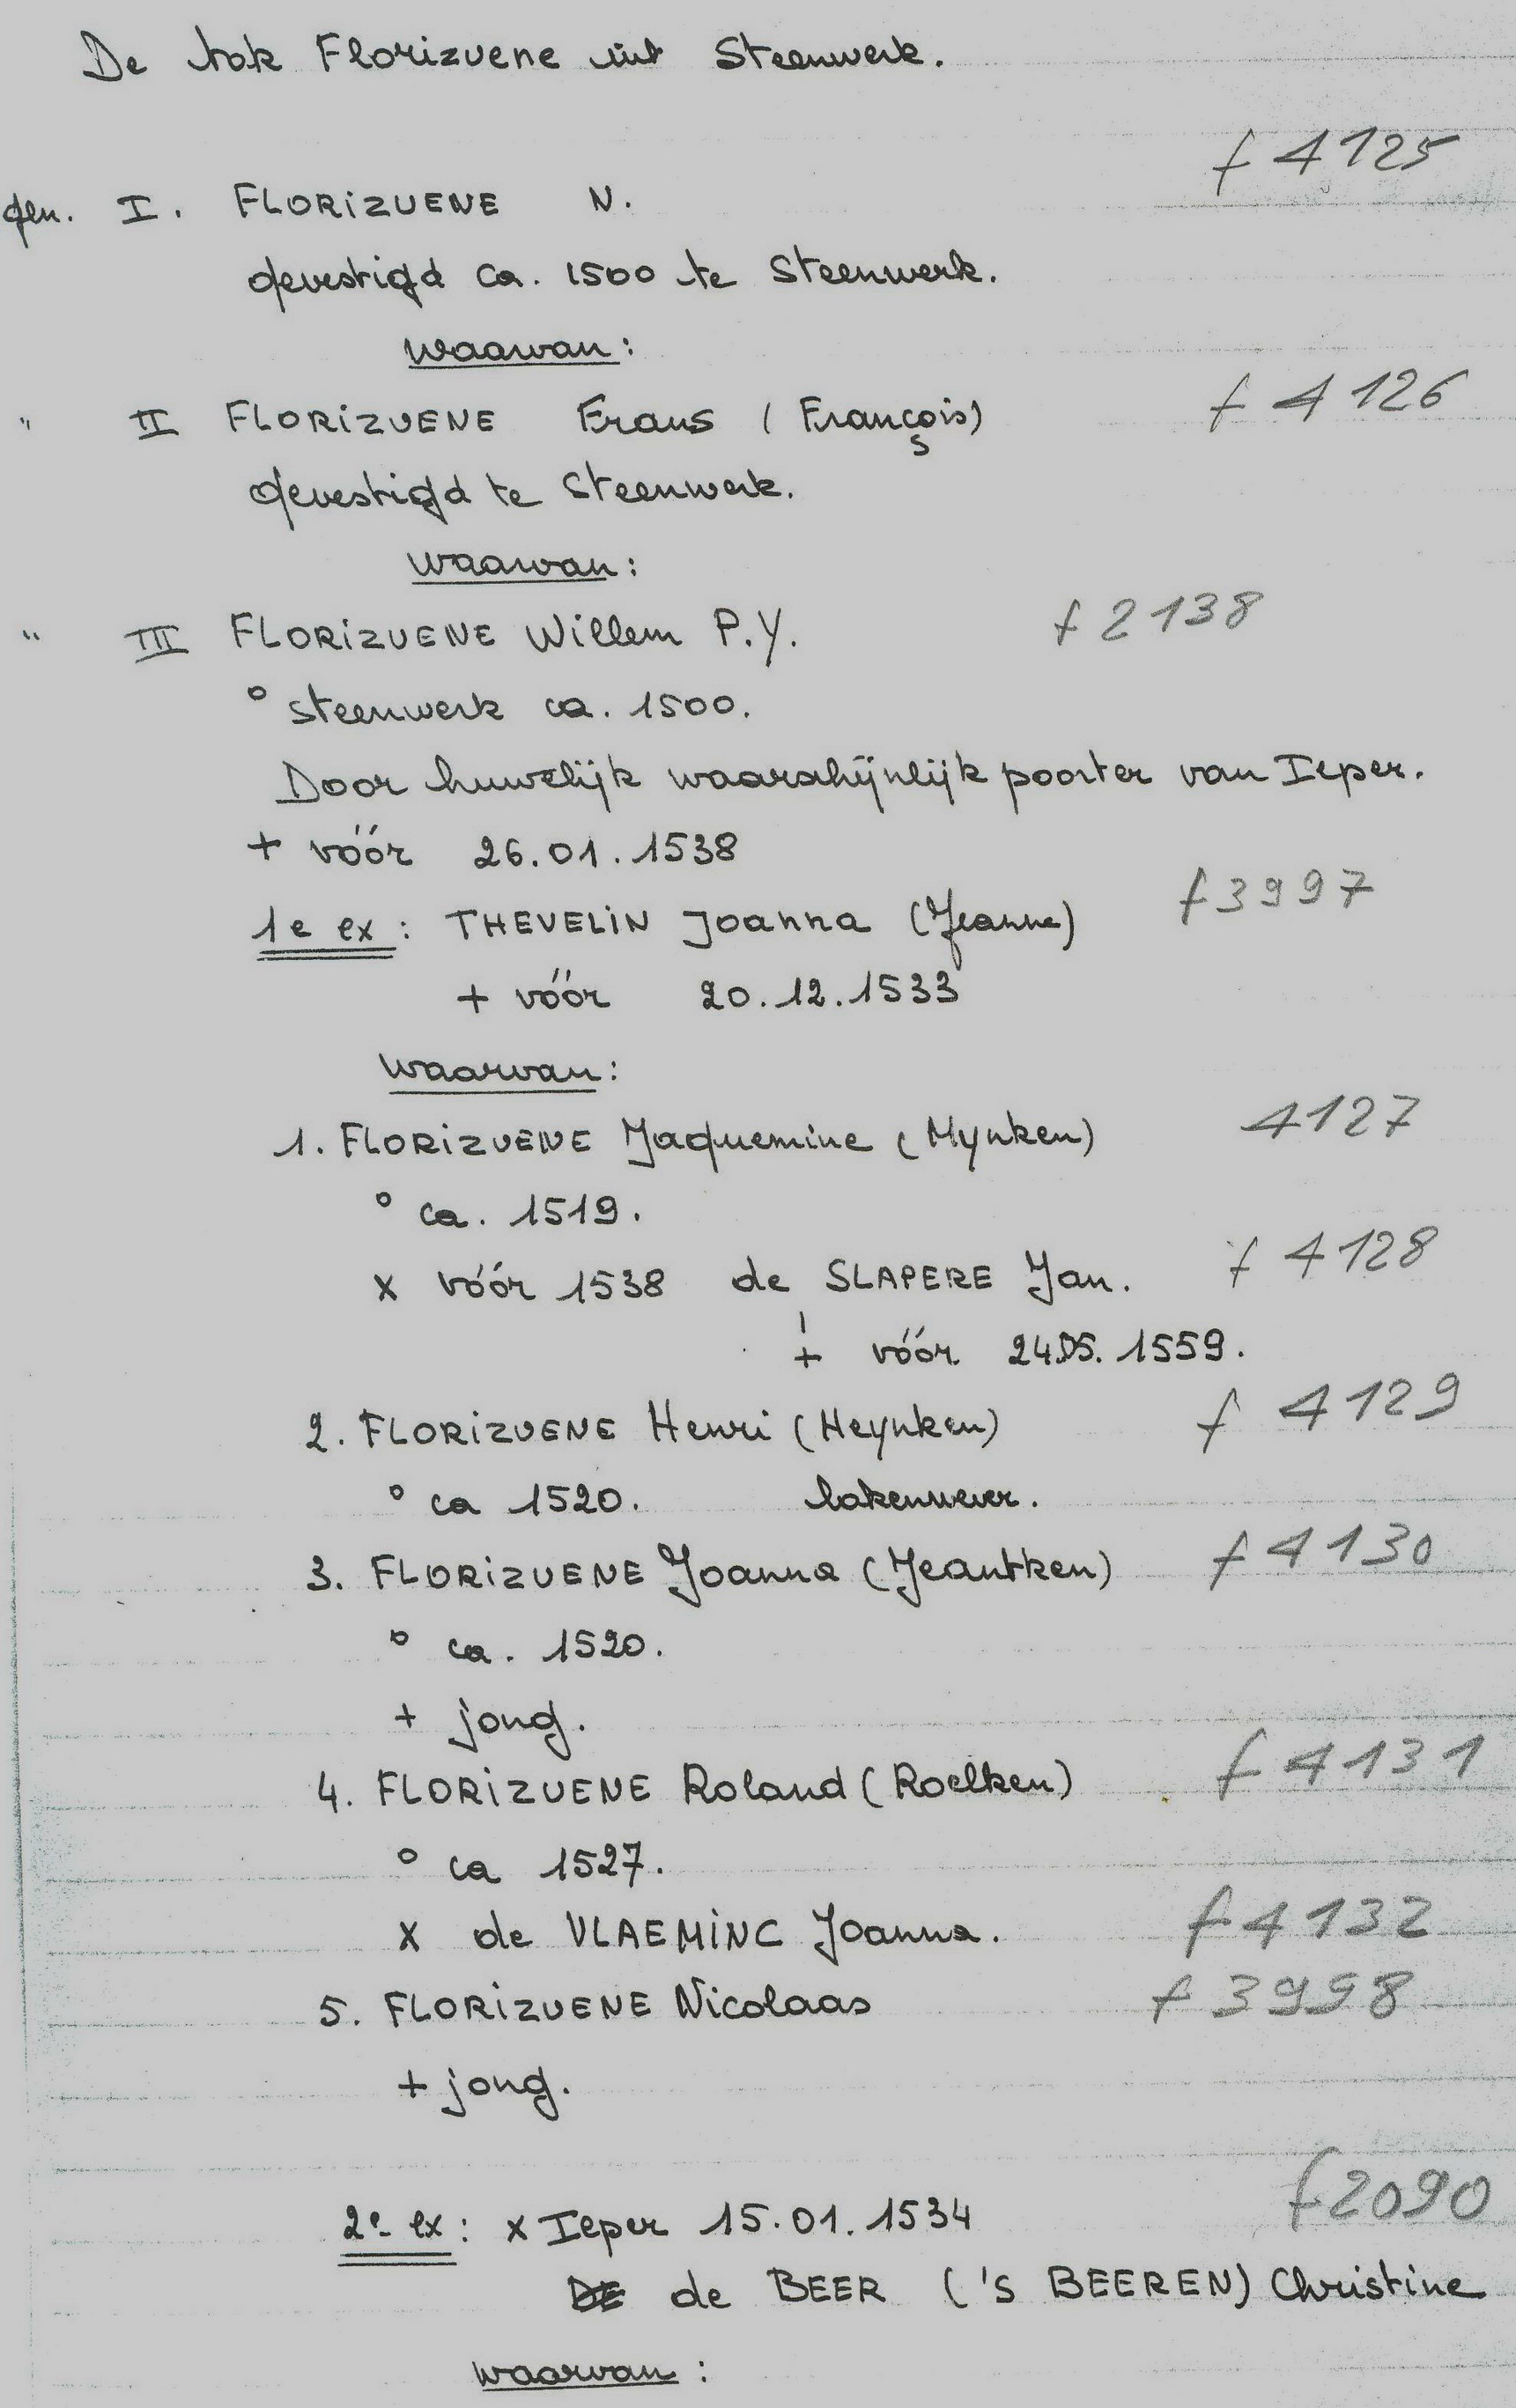 De tak Florizuene uit Steenwerk.
f 4125
gen. I. FLORIZUENE N.
gevestigd ca. 1500 te Steenwerk.
waarvan:
f 4126
" II FLORIZUENE Frans (François)
gevestigd te Steenwerk.
waarvan:
f 2138
" III FLORIZUENE Willem P.Y.
° Steenwerk ca. 1500.
Door huwelijk waarschijnlijk poorter van Ieper.
+ vóór 26.01.1538
f 3997
1e ex: THEVELIN Joanna (Jeanne)
+ vóór 20.12.1533
waarvan:
1. FLORIZUENE Jaquemine (Mynken) 4127
° ca. 1519.
x vóór 1538 de SLAPERE Jan. f 4128
+ vóór 24.05.1559.
2. FLORIZUENE Henri (Heynken) f 4129
° ca 1520. lakenwever.
3. FLORIZUENE Joanna (Jeantken) f 4130
° ca. 1520.
+ jong.
4. FLORIZUENE Roland (Roelken) f 4131
° ca 1527.
x de VLAEMINC Joanna. f 4132
5. FLORIZUENE Nicolaas f 3998
+ jong.
f 2090
2e ex: x Ieper 15.01.1534
DE de BEER ('S BEEREN) Christine
waarvan: